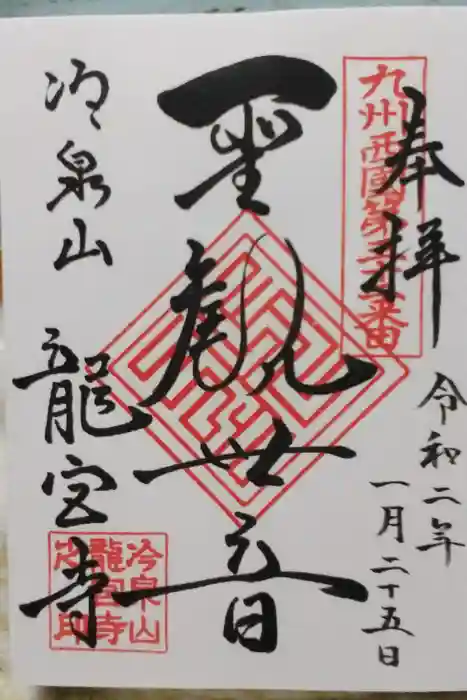 奉拝
九州西国第三十二番
令和二年
一月二十五日
聖観世音
冷泉山
龍宮寺
冷泉山
龍宮寺
之印